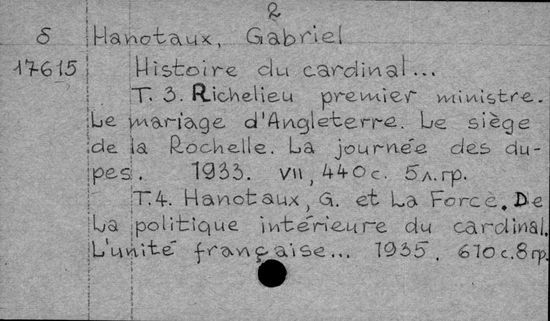 2
δ Hanotaux, Gabriel
17615 Histoire du cardinal...
T. 3. Richelieu premier ministre.
Le mariage d'Angleterre. Le siège
de la Rochelle. La journée des du-
pes. 1933. VII, 440 c. 5 л. гр.
T. 4. Hanotaux, G. et La Force. De
La politique intérieure du cardinal.
L'unité française... 1935. 610 c. 8 гр.